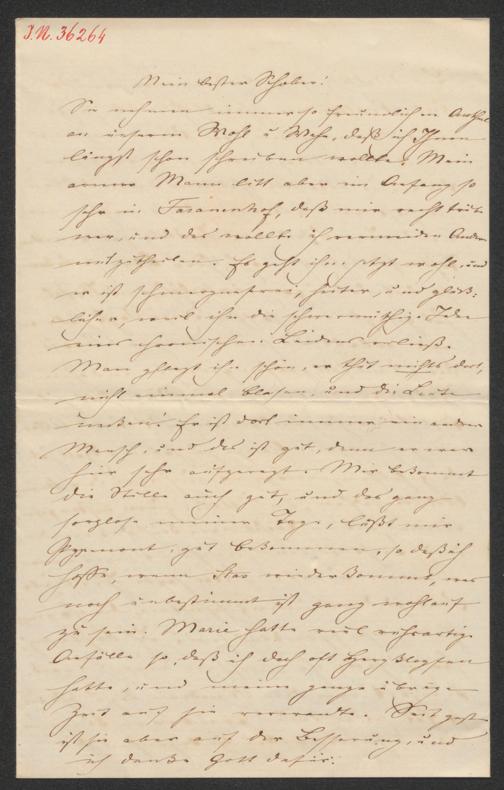 J.N. 36264
Mein bester Schober!
Sie nehmen immer so freundlich Antheil
an unserm Wohl u Wehe, daß ich Ihnen
längst schon schreiben wollte. Mein
armer Mann litt aber im Anfang so
sehr in Tasanenhof, daß mir recht trübe
war, und das wollte ich vermeiden Andern
mitzutheilen. Es geht ihm jetzt wohl, und
er ist schmerzensfrei, heiter, und glück-
licher, weil ihn die schwermüthige Idee
eines chronischen Leidens verließ.
Man pflegt ihn schön, er thut nichts dort,
nicht einmal blasen, und die Leute
Er ist dort immer ein anderer
Mensch, und das ist gut, denn er war
hier sehr aufgeregt. Mir bekommt
die Stille auch gut, und das ganz
sorglose meiner Tage, läßt mir
Pyrmont gut bekommen, so daß ich
hoffe, wenn wiederkommt, was
noch unbestimmt ist ganz wohlauf
zu sein. Marie hatte viel ruhrartige
Anfälle so, daß ich doch oft Herzklopfen
hatte, und meine ganze übrige
Zeit auf sie verwandte. Seit gestern
ist sie aber auf der Besserung, und
ich danke Gott dafür.